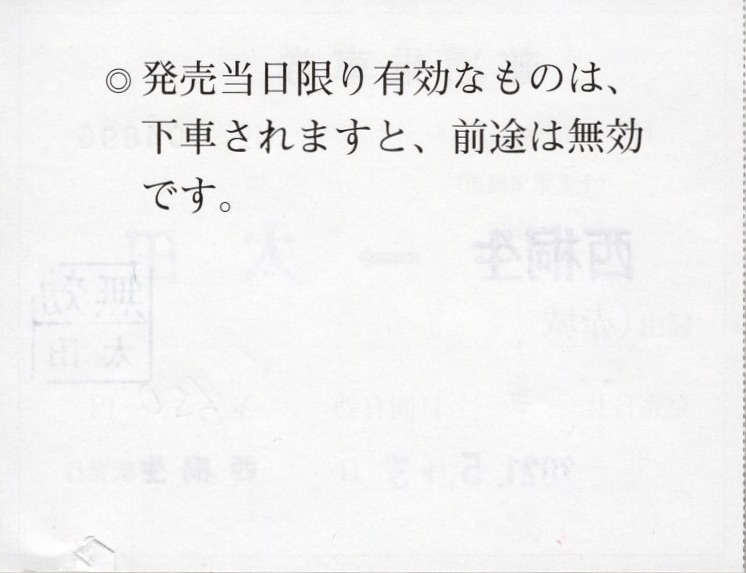 ◎発売当日限り有効なものは、
下車されますと、前途は無効
です。